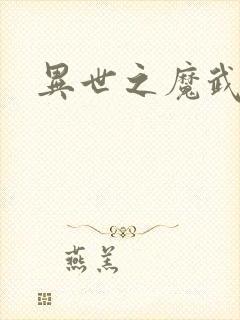 異世之魔武
燕羔